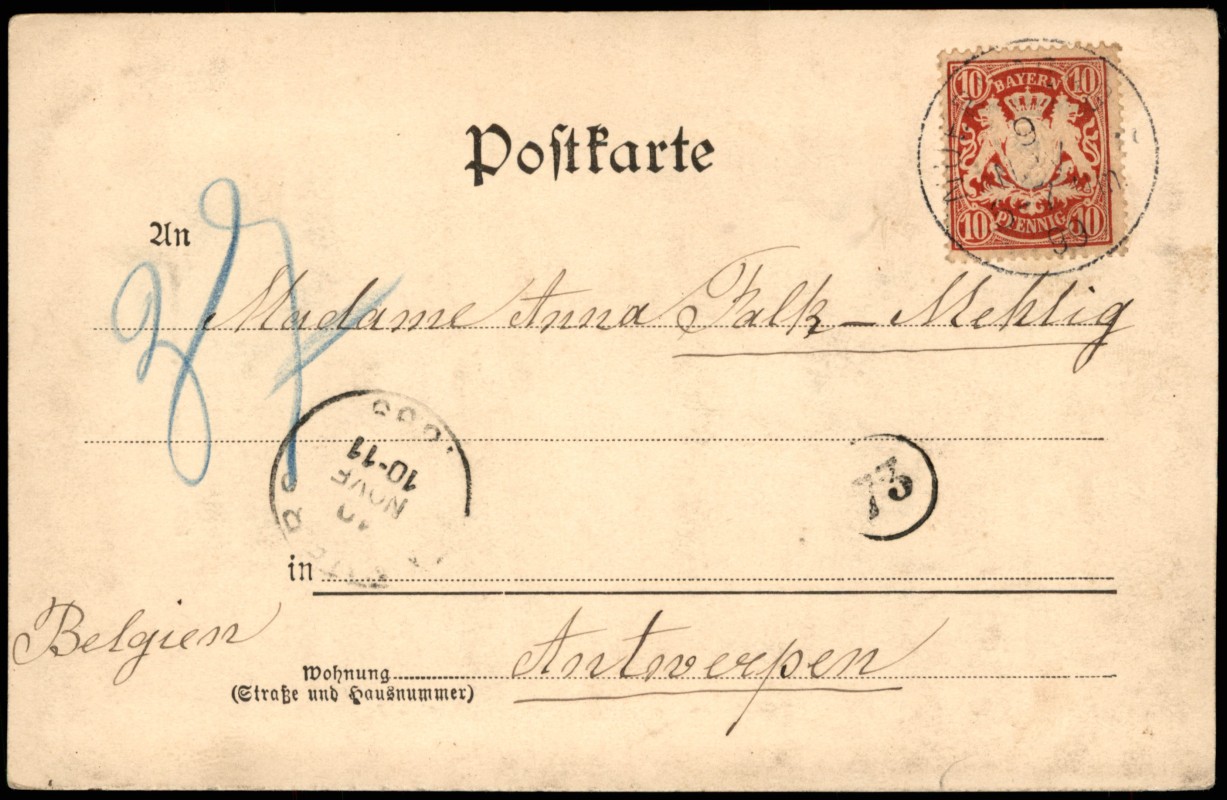 Postkarte
10 BAYERN 10
10 PFENNIG 10
An
Madame Anna Falk-Mehlig
10
NOVE
10-11
73
in
Belgien
Antwerpen
Wohnung
(Straße und Hausnummer)